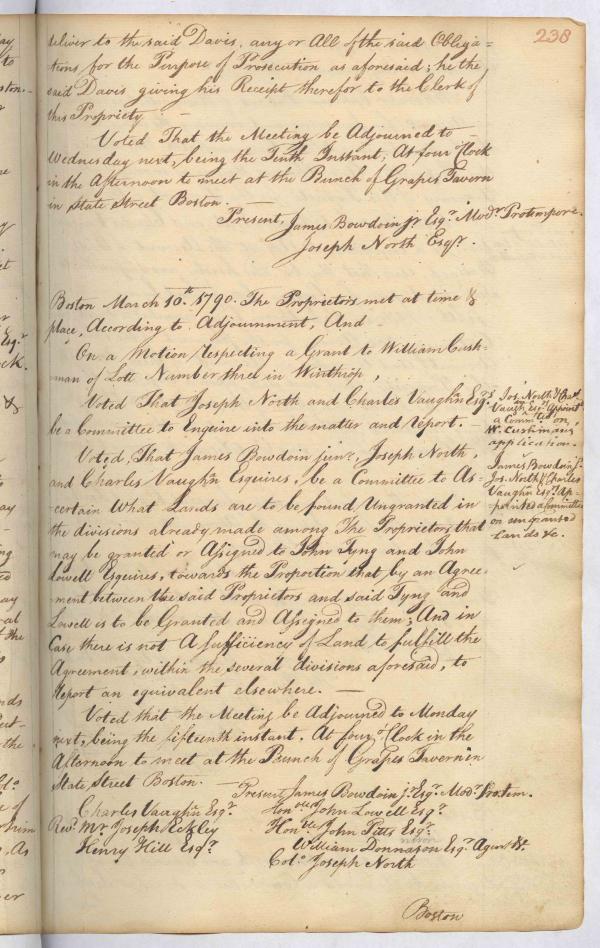 238
deliver to the said Davis, any or All of the said Obliga=
tions for the Purpose of Prosecution as aforesaid; he the
said Davis giving his Receipt therefor to the Clerk of
this Propriety —
Voted That the Meeting be Adjourned to —
Wednesday next, being the Tenth Instant, At four oClock
in the Afternoon to meet at the Bunch of Grapes Tavern
in State Street Boston. —
Present, James Bowdoin jr Esqr. Modr. Protempore.
Joseph North Esqr.
Boston March 10th. 1790. The Proprietors met at time &
place, According to Adjournment, And
On a Motion respecting a Grant to William Cush-
man of Lott Number three in Winthrop,
Voted That Joseph North and Charles Vaughn Esqrs.
be a Committee to Enquire into the matter and report. —
Jos. North & Chas
Vaughn Esqrs. appoint
a Committee on
W. Cushmans
application.
Voted, That James Bowdoin junr., Joseph North,
and Charles Vaughn Esquires, be a Committee to As-
-certain What Lands are to be found Ungranted in
the divisions already made among The Proprietors that
may be granted or Assigned to John Tyng and John
Lowell Esquires, towards the Proportion that by an Agree-
-ment between the said Proprietors and said Tyng and
Lowell is to be Granted and Assigned to them; And in
Case there is not A Sufficiency of Land to fulfill the
Agreement, within the several divisions aforesaid, to
Report an equivalent elsewhere. —
James Bowdoin jr.
Jos. North & Charles
Vaughn Esqrs. ap-
pointed a Committee
on ungranted
Lands &c.
Voted that the Meeting be Adjourned to Monday
next, being the fifteenth instant. At four oClock in the
Afternoon to meet at the Bunch of Grapes Tavern in
State Street Boston. —
Present James Bowdoin jr. Esqr. Modr. Protem.
Charles Vaughn Esqr.
Honble John Lowell Esqr.
Revd. Mr. Joseph Eckley
Honble John Pitts Esqr.
Henry Hill Esqr.
William Donnason Esqr. Agent &c.
Colo. Joseph North
Boston